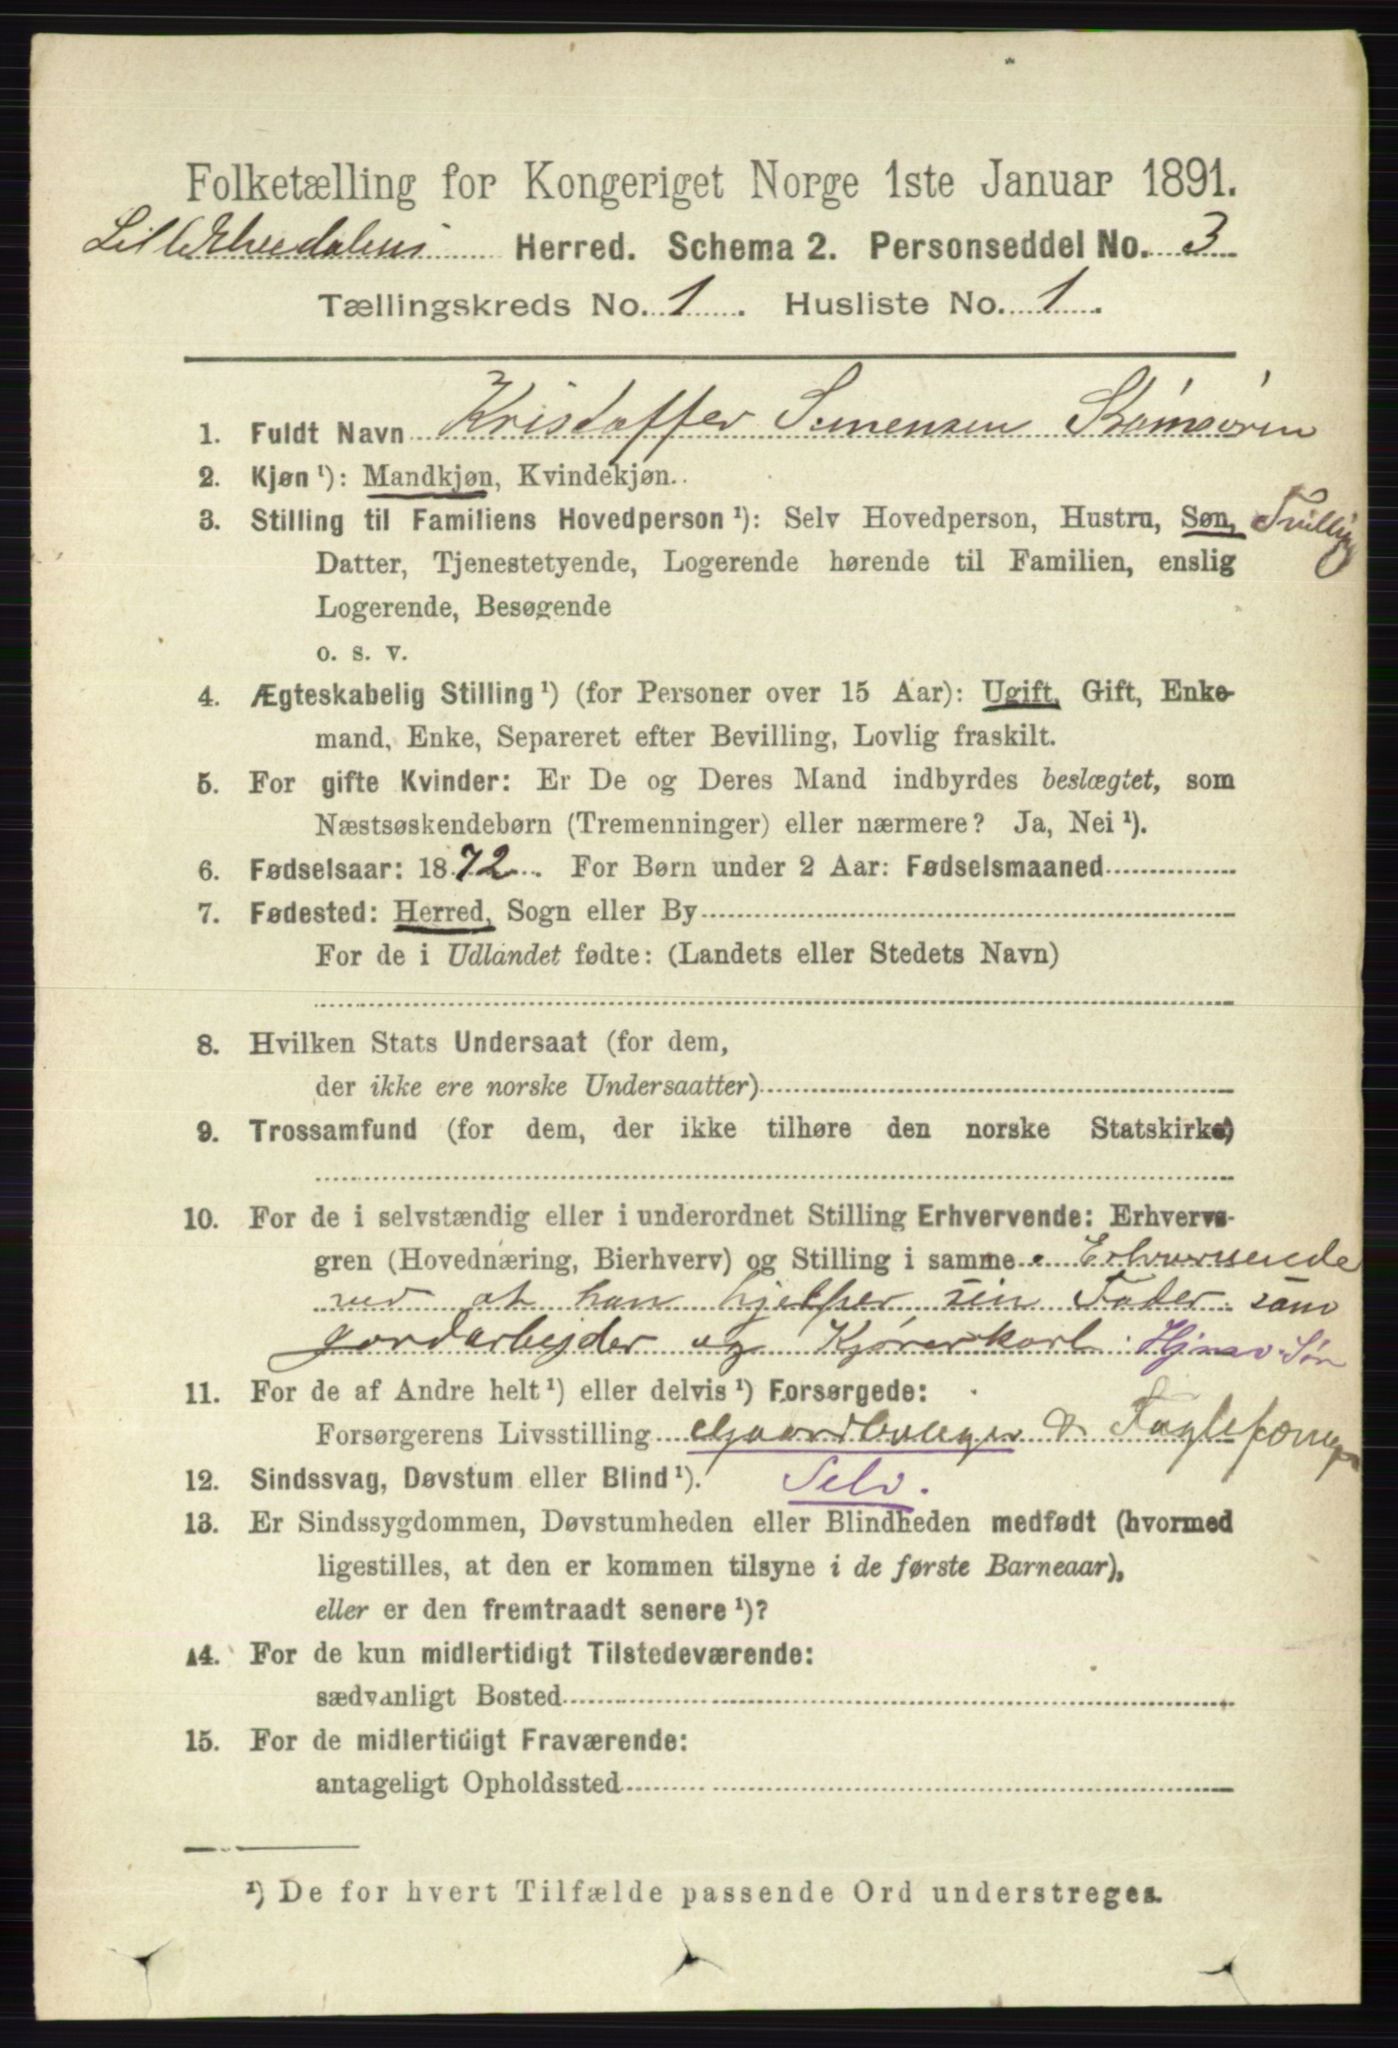 Folketælling for Kongeriget Norge 1ste Januar 1891.
Lille Elvedalens Herred. Schema 2. Personseddel No. 3
Tællingskreds No. 1. Husliste No. 1.
1. Fuldt Navn Kristoffer Simensen Strømsøren
2. Kjøn ¹): Mandkjøn, Kvindekjøn.
3. Stilling til Familiens Hovedperson ¹): Selv Hovedperson, Hustru, Søn, Tvilling
Datter, Tjenestetyende, Logerende hørende til Familien, enslig
Logerende, Besøgende
o. s. v.
4. Ægteskabelig Stilling ¹) (for Personer over 15 Aar): Ugift, Gift, Enke-
mand, Enke, Separeret efter Bevilling, Lovlig fraskilt.
5. For gifte Kvinder: Er De og Deres Mand indbyrdes beslægtet, som
Næstsøskendebørn (Tremenninger) eller nærmere? Ja, Nei ¹).
6. Fødselsaar: 1872. For Børn under 2 Aar: Fødselsmaaned
7. Fødested: Herred, Sogn eller By
For de i Udlandet fødte: (Landets eller Stedets Navn)
8. Hvilken Stats Undersaat (for dem,
der ikke ere norske Undersaatter)
9. Trossamfund (for dem, der ikke tilhøre den norske Statskirke)
10. For de i selvstændig eller i underordnet Stilling Erhvervende: Erhvervs-
gren (Hovednæring, Bierhverv) og Stilling i samme. Erhvervende
ved at han hjelper sin Fader som
gordarbejder og Kjørerkarl. Hjmv. Søn
11. For de af Andre helt ¹) eller delvis ¹) Forsørgede:
Forsørgerens Livsstilling Gaardbruger & Faglefænger
12. Sindssvag, Døvstum eller Blind ¹). Selv.
13. Er Sindssygdommen, Døvstumheden eller Blindheden medfødt (hvormed
ligestilles, at den er kommen tilsyne i de første Barneaar),
eller er den fremtraadt senere ¹)?
14. For de kun midlertidigt Tilstedeværende:
sædvanligt Bosted
15. For de midlertidigt Fraværende:
antageligt Opholdssted
¹) De for hvert Tilfælde passende Ord understreges.